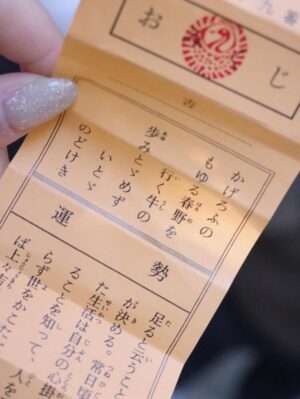 九番
おじ
吉
かげろふの
もゆる春野を
行く牛の
歩みとゞめず
いとゞ
のどけき
運勢
足ると云うこと
が決める。常日頃
た生活は自分の心掛
ることを知って、
らず世をかこた
ば上々吉
人を